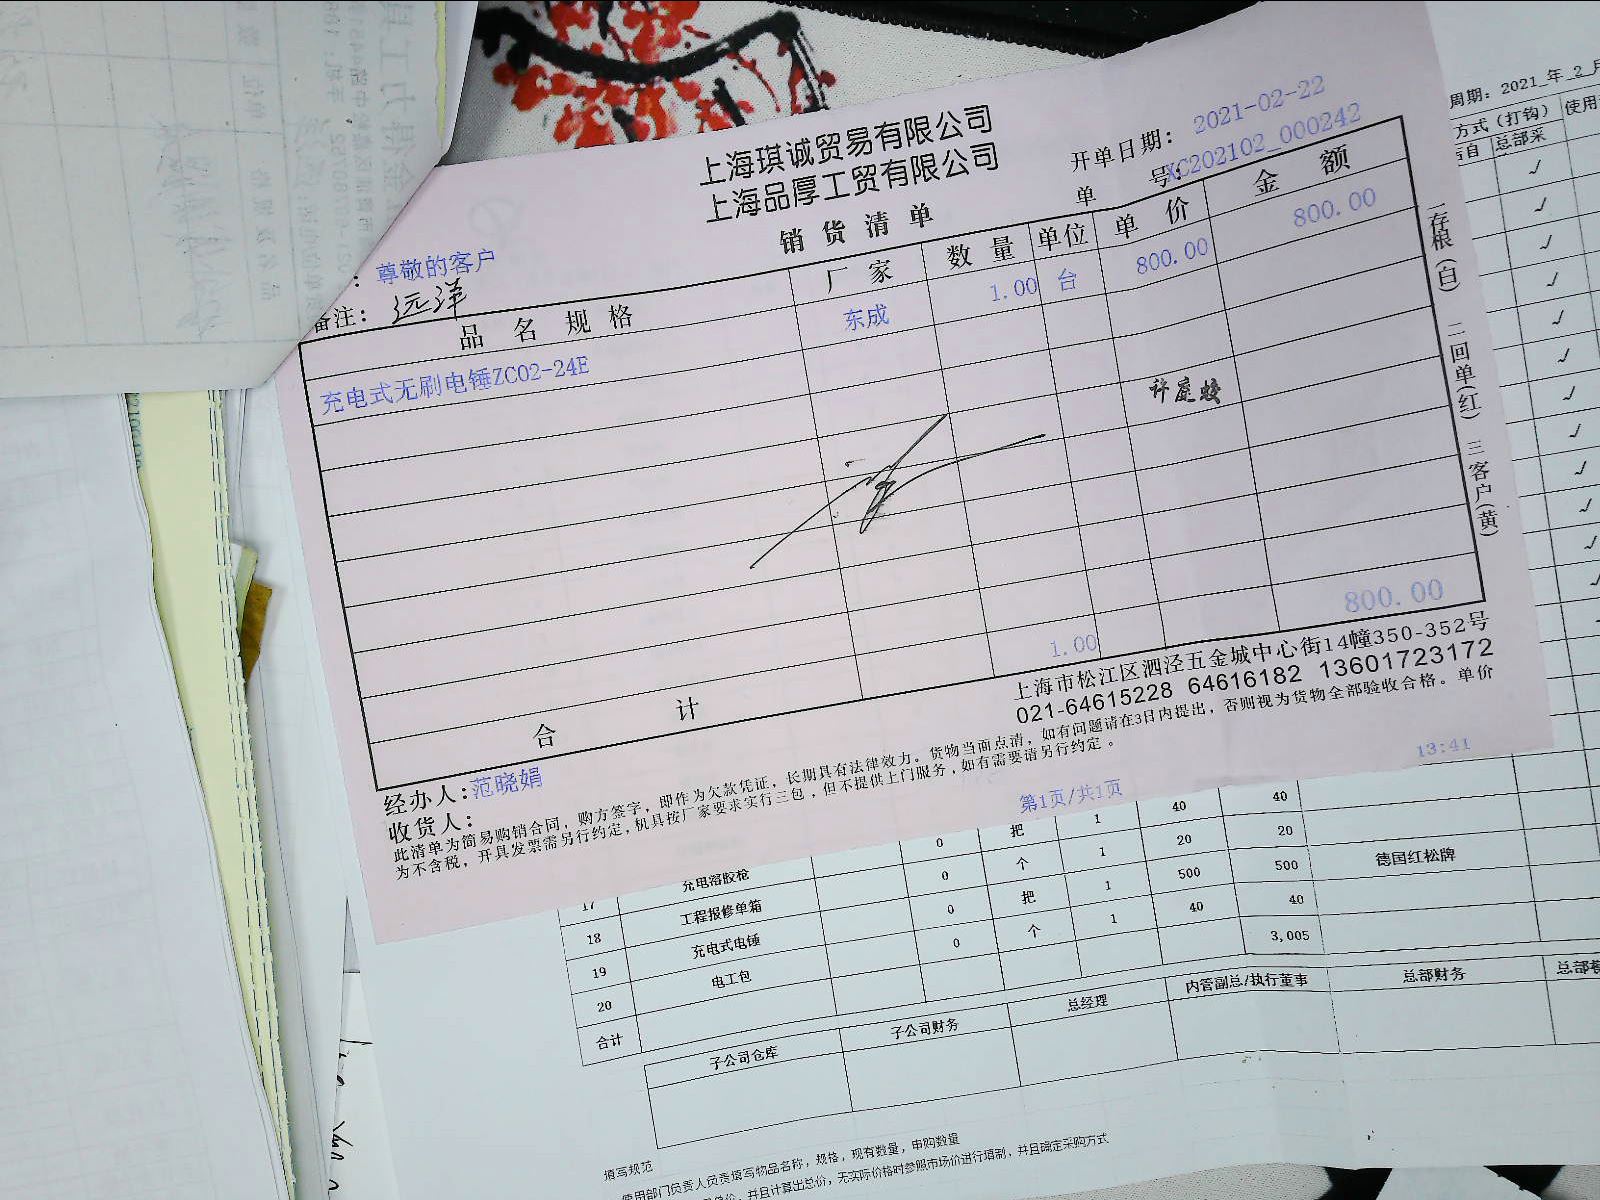 上海琪诚贸易有限公司
上海品厚工贸有限公司
销货清单
开单日期： 2021-02-22
单 号：XC202102_000242
：尊敬的客户
备注： 远洋
品名规格 厂家 数量 单位 单价 金额
充电式无刷电锤ZC02-24E 东成 1.00 台 800.00 800.00
许庭蛟
合计 1.00 800.00
一存根(白) 二回单(红) 三客户(黄)
经办人:范晓娟
收货人:
上海市松江区泗泾五金城中心街14幢350-352号
021-64615228 64616182 13601723172
此清单为简易购销合同，购方签字，即作为欠款凭证，长期具有法律效力。货物当面点清，如有问题请在3日内提出，否则视为货物全部验收合格。单价
为不含税，开具发票需另行约定,机具按厂家要求实行三包，但不提供上门服务，如有需要请另行约定。
第1页/共1页
13:41
周期：2021 年 2 月
方式（打钩） 使用
总部采
17 充电溶胶枪 0 把 1 40 40
18 工程报修单箱 0 个 1 20 20
19 充电式电锤 0 把 1 500 500 德国红松牌
20 电工包 0 个 1 40 40
合计 3,005
子公司仓库 子公司财务 总经理 内管副总/执行董事 总部财务
填写规范
使用部门负责人员责填写物品名称，规格，现有数量，申购数量
并且计算出总价，无实际价格时参照市场价进行填制，并且确定采购方式